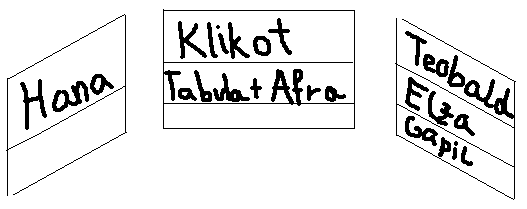 Hana
Klikot
Tabulat Afra
Teobald
Elza
Gapil